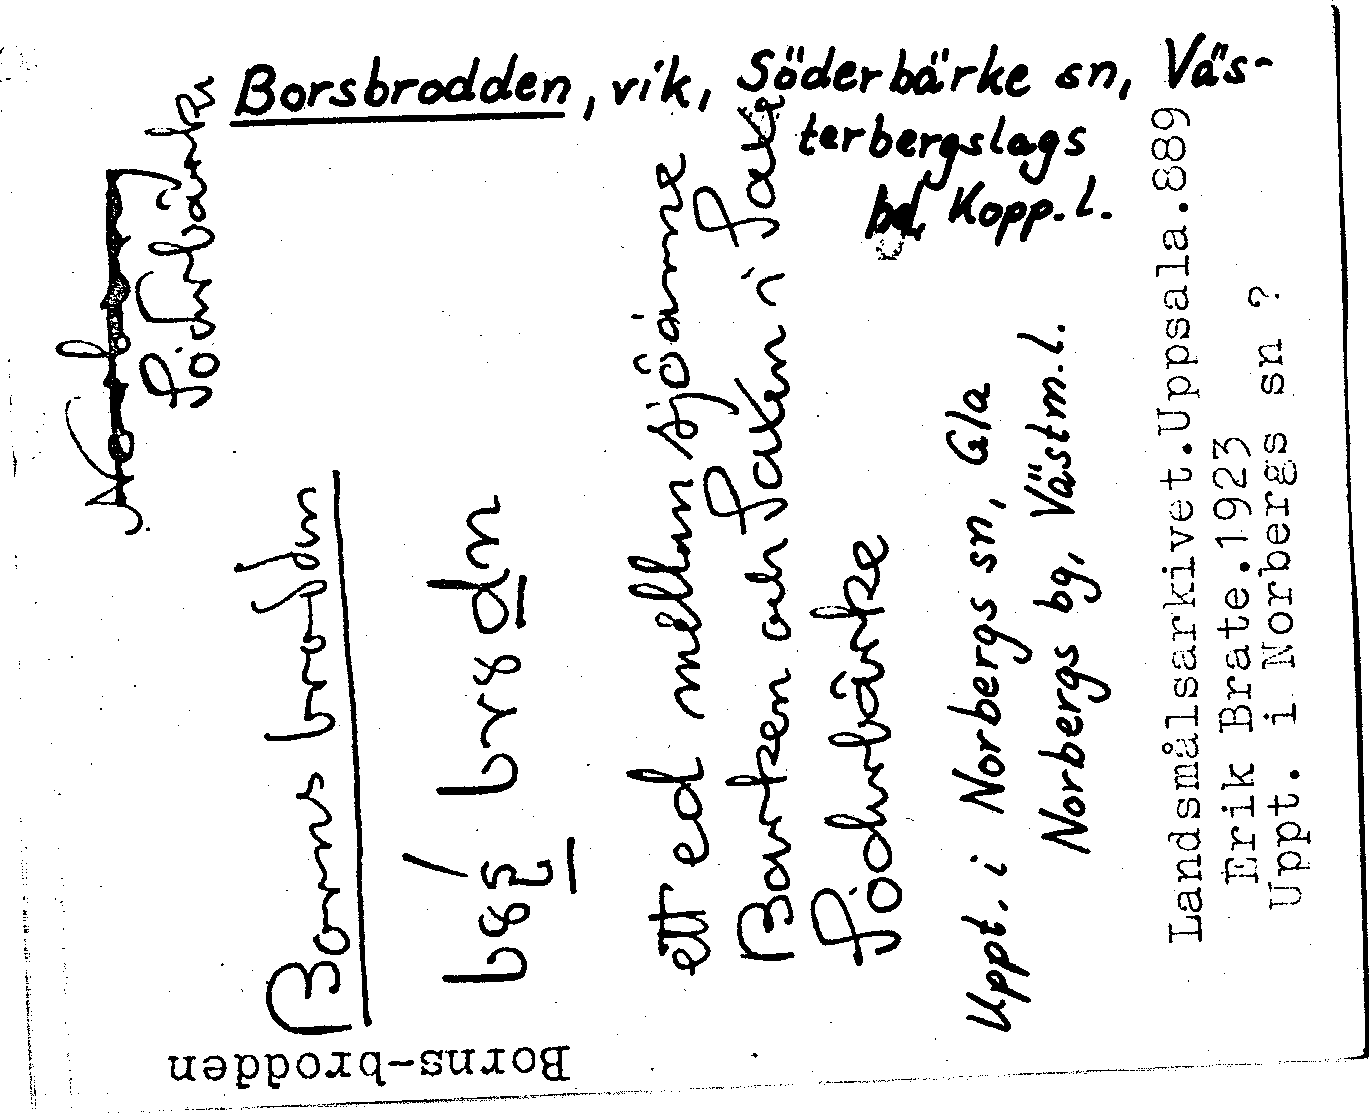 Borsbrodden, vik, Söderbärke sn, Väs-
terbergslags
bd, Kopp. l.
Söderbärke
Borns brodden
ett ed mellan sjöarne
Barken och Saxen i
Söderbärke
Uppt. i Norbergs sn, Gla
Norbergs bg, Västm. l.
Landsmålsarkivet.Uppsala.889
Erik Brate.1923
Uppt. i Norbergs sn ?
Borns-brodden